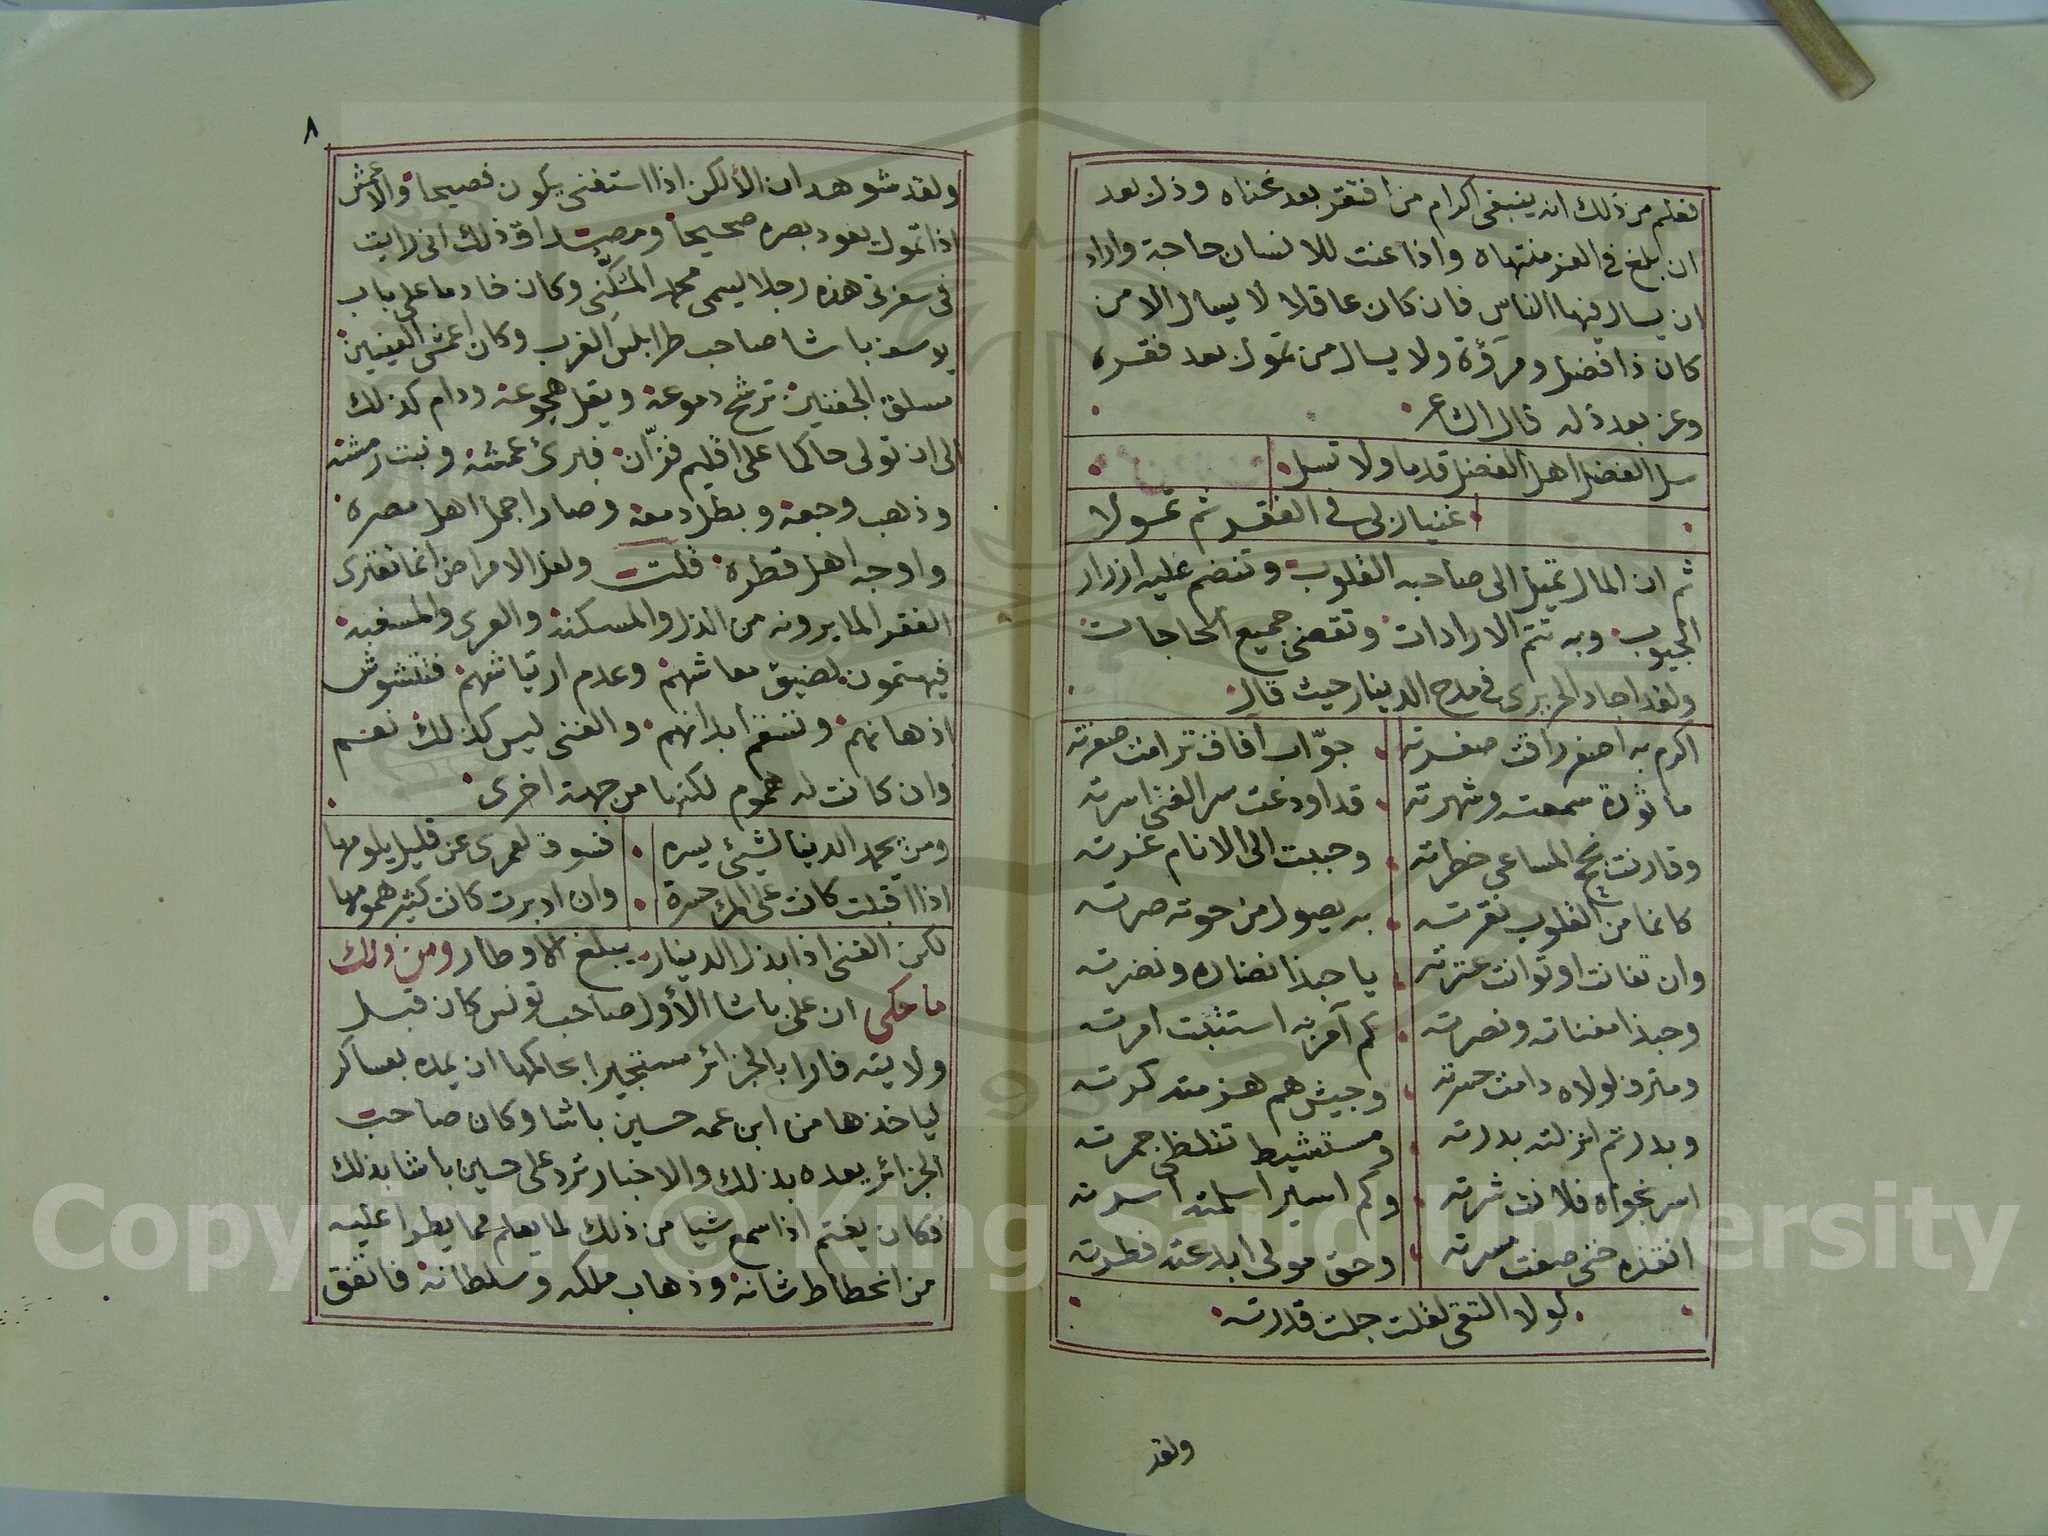 فعلم من ذلك انه ينبغي اكرام من افتقر بعد غناه وذل بعد
ان بلغ في العز منتهاه واذا عنت للانسان حاجة واراد
ان يسال فيها الناس فان كان عاقلا لا يسال الا من
كان ذا فضل ومروّة ولا يسال من تمول بعد فقره
وعز بعد ذله قال الشاعر
سل الفضل اهل الفضل قدما ولا تسل
غنيا ربى في الفقر ثم تمولا
ثم ان المال تميل الى صاحبه القلوب وتنضم عليه ازرار
الجيوب وبه تتم الارادات وتقضى جميع الحاجات
ولقد اجاد الحريرى في مدح الدينار حيث قال
اكرم به اصفر راقت صفرته جوّاب آفاق ترامت سفرته
ماثورة سمعته وشهرته قد اودعت سر الغنى اسرته
وقارنت نجح المساعي خطرته وحببت الى الانام غرته
كانما من القلوب نقرته به يصول من حوته صرته
وان تفانت او توانت عترته يا حبذا نضاره ونضرته
وحبذا مغناته ونصرته كم آمر به استتبت امرته
ومترف لولاه دامت حسرته وجيش هم هزمته كرته
وبدر تم انزلته بدرته ومستشيط تتلظى جمرته
اسر نجواه فلانت شرته وكم اسير اسلمته اسرته
انقذه حتى صفت مسرته وحق مولى ابدعته فطرته
لولا التقى لقلت جلت قدرته
ولقد
٨
ولقد شوهد ان الألكن اذا استغنى يكون فصيحا والاعمش
اذا تمول يعود بصره صحيحا ومصداق ذلك انى رايت
فى سفرتى هذه رجلا يسمى محمد المكّنى وكان خادما على باب
يوسف باشا صاحب طرابلس الغرب وكان اعمش العينين
مسلق الجفنين ترشح دموعه ويقل هجوعه ودام كذلك
الى ان تولى حاكما على اقليم فزّان فبرئ عمشه ونبت رمشه
وذهب وجعه وبطل دمعه وصار اجمل اهل مصره
واوجه اهل قطره قلت ولعل الامراض انما تعترى
الفقر الما يرونه من الذل والمسكنة والعرى والمسغبة
فيهتمون لضيق معاشهم وعدم ارتياشهم فتتشوش
اذهانهم وتسقم ابدانهم والغنى ليس كذلك نعم
وان كانت له هموم لكنها من جهة اخرى
ومن يحمد الدنيا لشيئ يسره فسوف لعمرى عن قليل يلومها
اذا اقبلت كانت على المرء حسرة وان ادبرت كانت كثير همومها
لكن الغنى اذا بذل الدينار يبلغ الاوطار ومن ذلك
ما حكى ان على باشا الأول صاحب تونس كان قبل
ولايته فارا بالجزائر مستجيرا بحاكمها ان يمده بعساكر
لياخذها من ابن عمه حسين باشا وكان صاحب
الجزائر يعده بذلك والاخبار ترد على حسين باشا بذلك
فكان يغتم اذا سمع شيا من ذلك لما يعلم مما يطرا عليه
من انحطاط شانه وذهاب ملكه وسلطانه فاتفق
Copyright © King Saud University